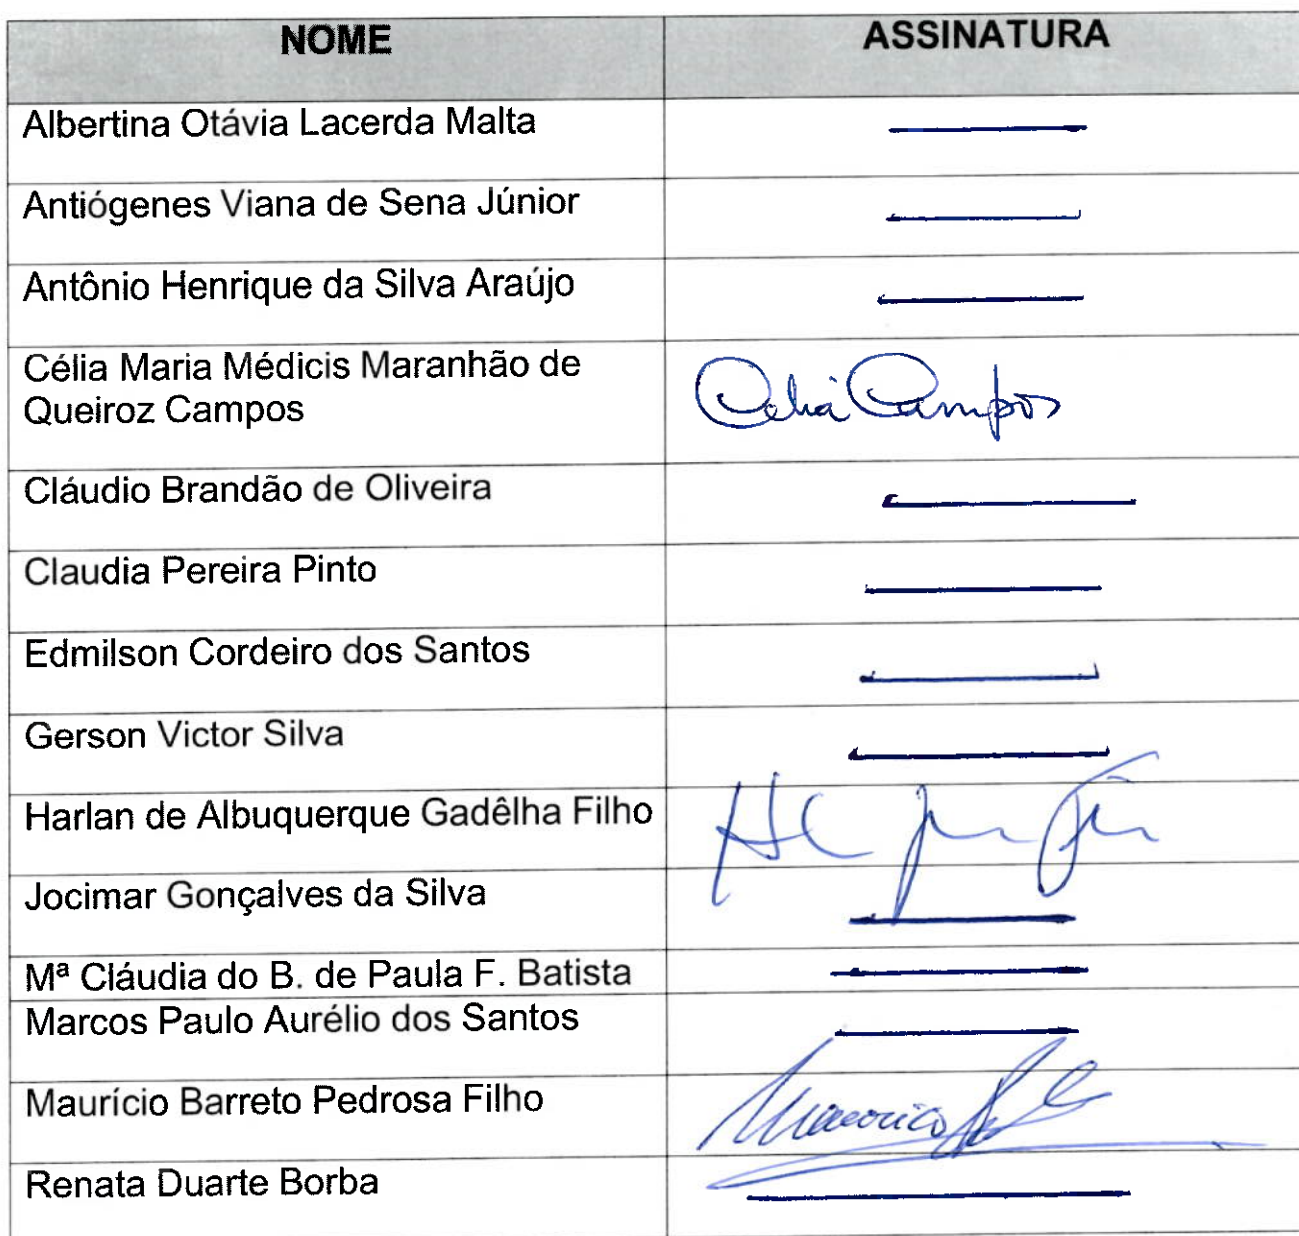 NOME ASSINATURA
Albertina Otávia Lacerda Malta
Antiógenes Viana de Sena Júnior
Antônio Henrique da Silva Araújo
Célia Maria Médicis Maranhão de
Queiroz Campos
Celia Campos
Cláudio Brandão de Oliveira
Claudia Pereira Pinto
Edmilson Cordeiro dos Santos
Gerson Victor Silva
Harlan de Albuquerque Gadêlha Filho
Jocimar Gonçalves da Silva
Mª Cláudia do B. de Paula F. Batista
Marcos Paulo Aurélio dos Santos
Maurício Barreto Pedrosa Filho
Mauricio
Renata Duarte Borba